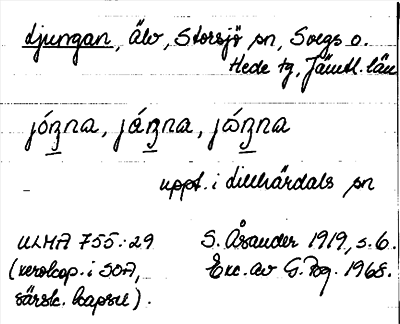 djungan, älv, Storsjö sn, Svegs o.
Hede tg, Jämtl. län
jóŋna, jáŋna, jώŋna
uppt. i Lillhärdals sn
ULMA 755:29
(xerokop. i SOA,
särsk. kapsel).
S. Åsander 1919, s. 6.
Exc. av G. Pog. 1968.